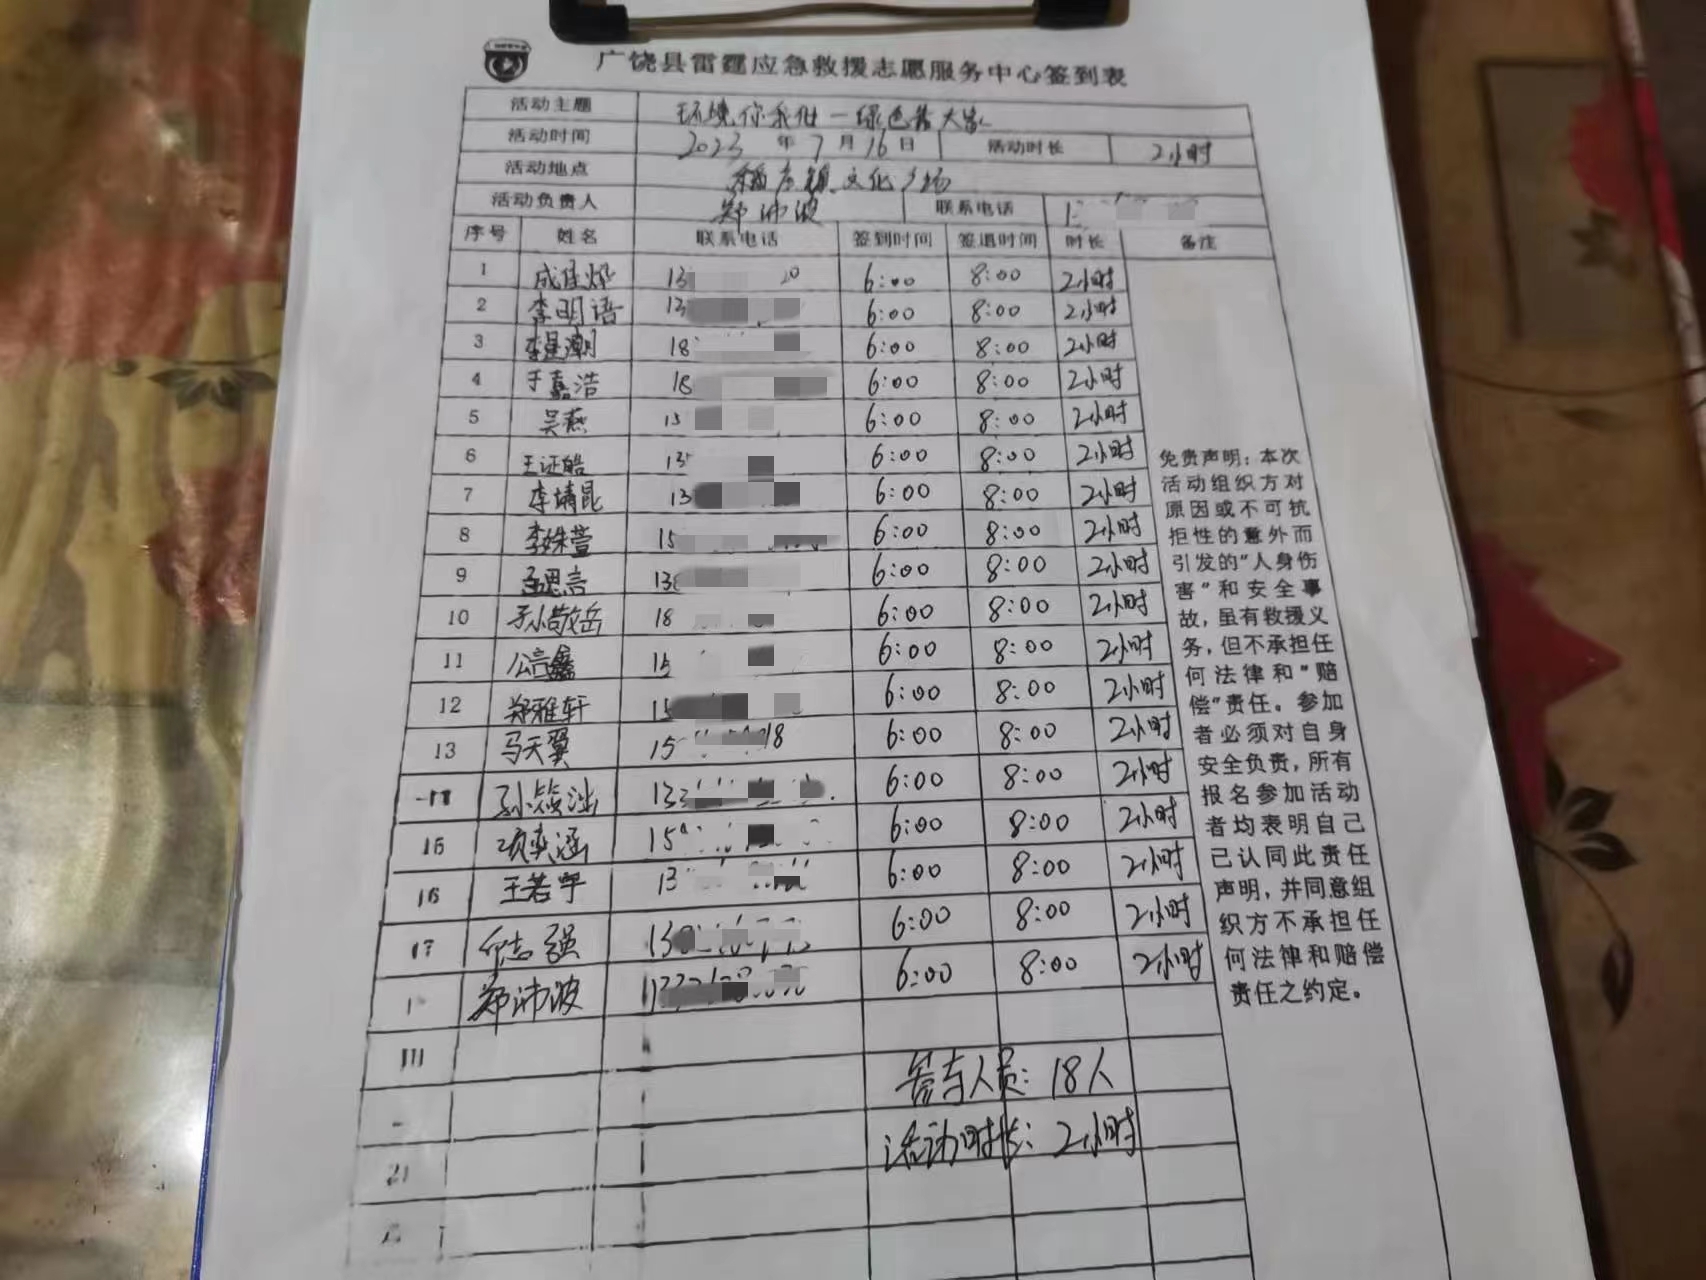 广饶县雷霆应急救援志愿服务中心签到表
活动主题 环境你我他一绿色靠大家
活动时间 2023年7月16日 活动时长 2小时
活动地点 稻庄镇文化广场
活动负责人 郑沛波 联系电话 1
序号 姓名 联系电话 签到时间 签退时间 时长 备注
1 成佳烨 13 20 6:00 8:00 2小时
2 李明语 13 6:00 8:00 2小时
3 李星潮 18 6:00 8:00 2小时
4 于嘉浩 18 6:00 8:00 2小时
5 吴燕 15 6:00 8:00 2小时
6 王证皓 13 6:00 8:00 2小时
7 李靖昆 13 6:00 8:00 2小时
8 李姝萱 15 6:00 8:00 2小时
9 孟思言 138 6:00 8:00 2小时
10 孙敬岳 18 6:00 8:00 2小时
11 公言鑫 15 6:00 8:00 2小时
12 郑雅轩 15 6:00 8:00 2小时
13 马天翼 15 18 6:00 8:00 2小时
孙筱涵 133 6:00 8:00 2小时
15 项奕涵 15 6:00 8:00 2小时
16 王若宇 13 6:00 8:00 2小时
17 志强 6:00 8:00 2小时
郑沛波 6:00 8:00 2小时
参与人员:18人
活动时长:2小时
21
免责声明:本次
活动组织方对
原因或不可抗
拒性的意外而
引发的"人身伤
害"和安全事
故,虽有救援义
务,但不承担任
何法律和"赔
偿"责任。参加
者必须对自身
安全负责,所有
报名参加活动
者均表明自己
己认同此责任
声明,并同意组
织方不承担任
何法律和赔偿
责任之约定。